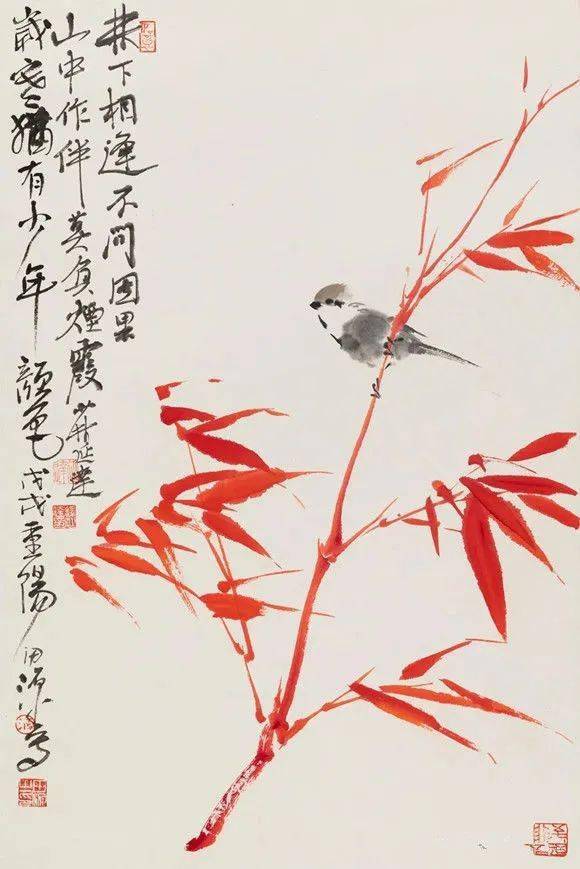 林下相逢不問因果
山中作伴莫負煙霞 延達
歲寒猶有少年顏色 戊戌重陽 田源寫